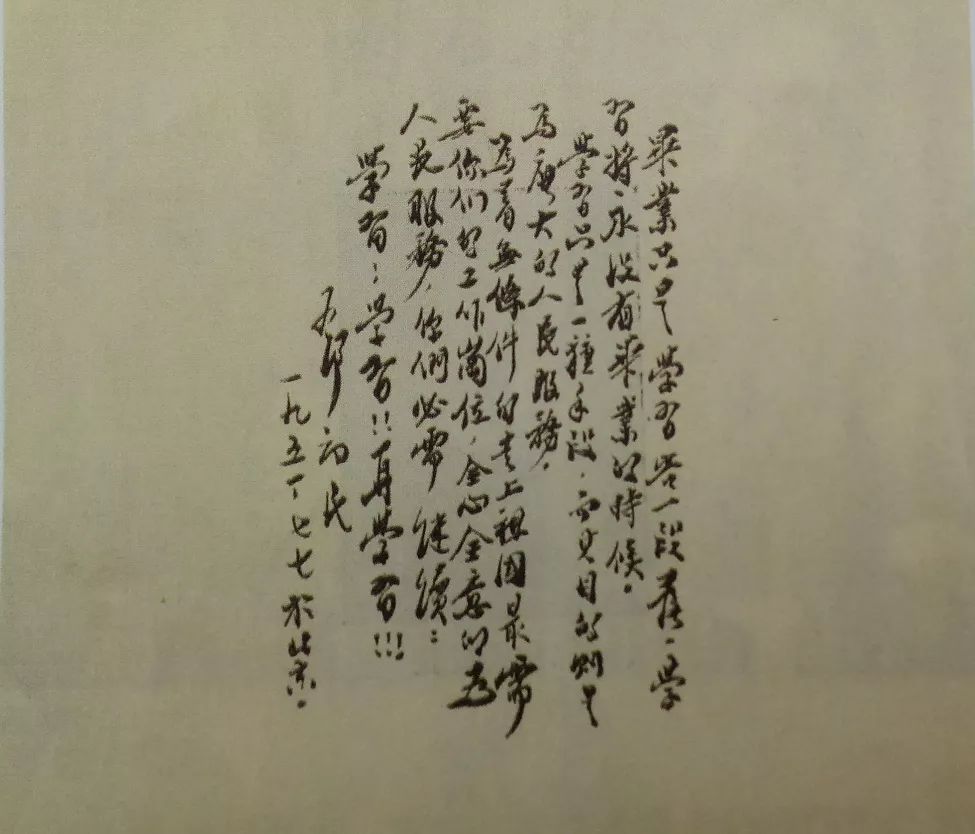 畢業只是學習營一段落、學
習將永没有畢業的時候。
學習只是一種手段，而其目的則是
為廣大的人民服務。
為着無條件的走上祖國最需
要你们的工作崗位，全心全意的为
人民服務，你們必需继續：
學習；學習!!再學習!!!
一九五一、七、七於北京。